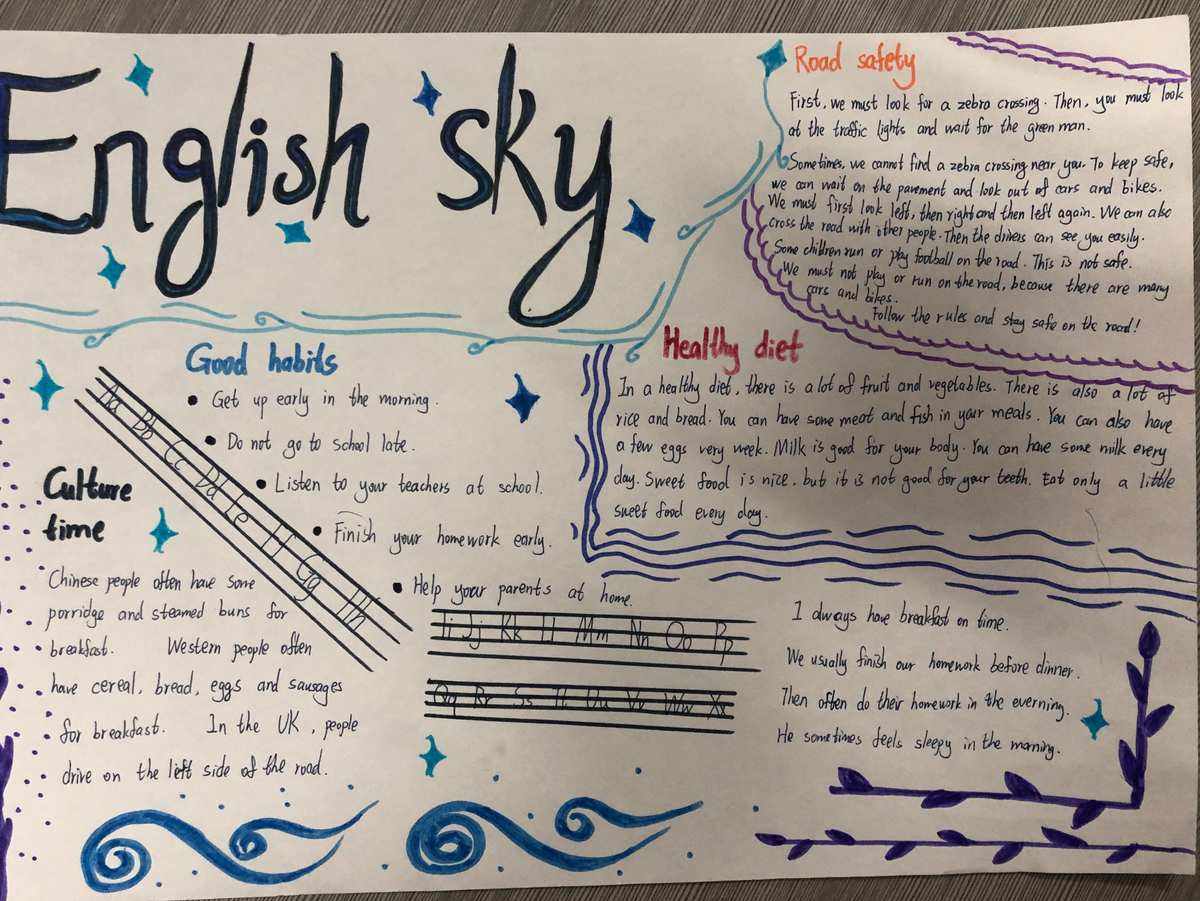 English sky
Road safety
First, we must look for a zebra crossing. Then, you must look
at the traffic lights and wait for the green man.
Sometimes, we cannot find a zebra crossing near you. To keep safe,
we can wait on the pavement and look out of cars and bikes.
We must first look left, then right and then left again. We can also
cross the road with other people. Then the drivers can see you easily.
Some children run or play football on the road. This is not safe.
We must not play or run on the road, because there are many
cars and bikes.
Follow the rules and stay safe on the road!
Good habits
Get up early in the morning.
Do not go to school late.
Listen to your teachers at school.
Finish your homework early.
Help your parents at home.
Healthy diet
In a healthy diet, there is a lot of fruit and vegetables. There is also a lot of
rice and bread. You can have some meat and fish in your meals. You can also have
a few eggs very week. Milk is good for your body. You can have some milk every
day. Sweet food is nice. but it is not good for your teeth. Eat only a little
sweet food every day.
Aa Bb Cc Dd Ee Ff Gg Hh
Ii Jj Kk Ll Mm Nn Oo Pp
Qq Rr Ss Tt Uu Vv Ww Xx
Culture
time
Chinese people often have some
porridge and steamed buns for
breakfast. Western people often
have cereal, bread, eggs and sausages
for breakfast. In the UK, people
drive on the left side of the road.
I always have breakfast on time.
We usually finish our homework before dinner.
Then often do their homework in the everning.
He sometimes feels sleepy in the morning.